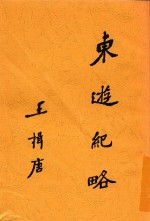 東遊紀略
王揖唐